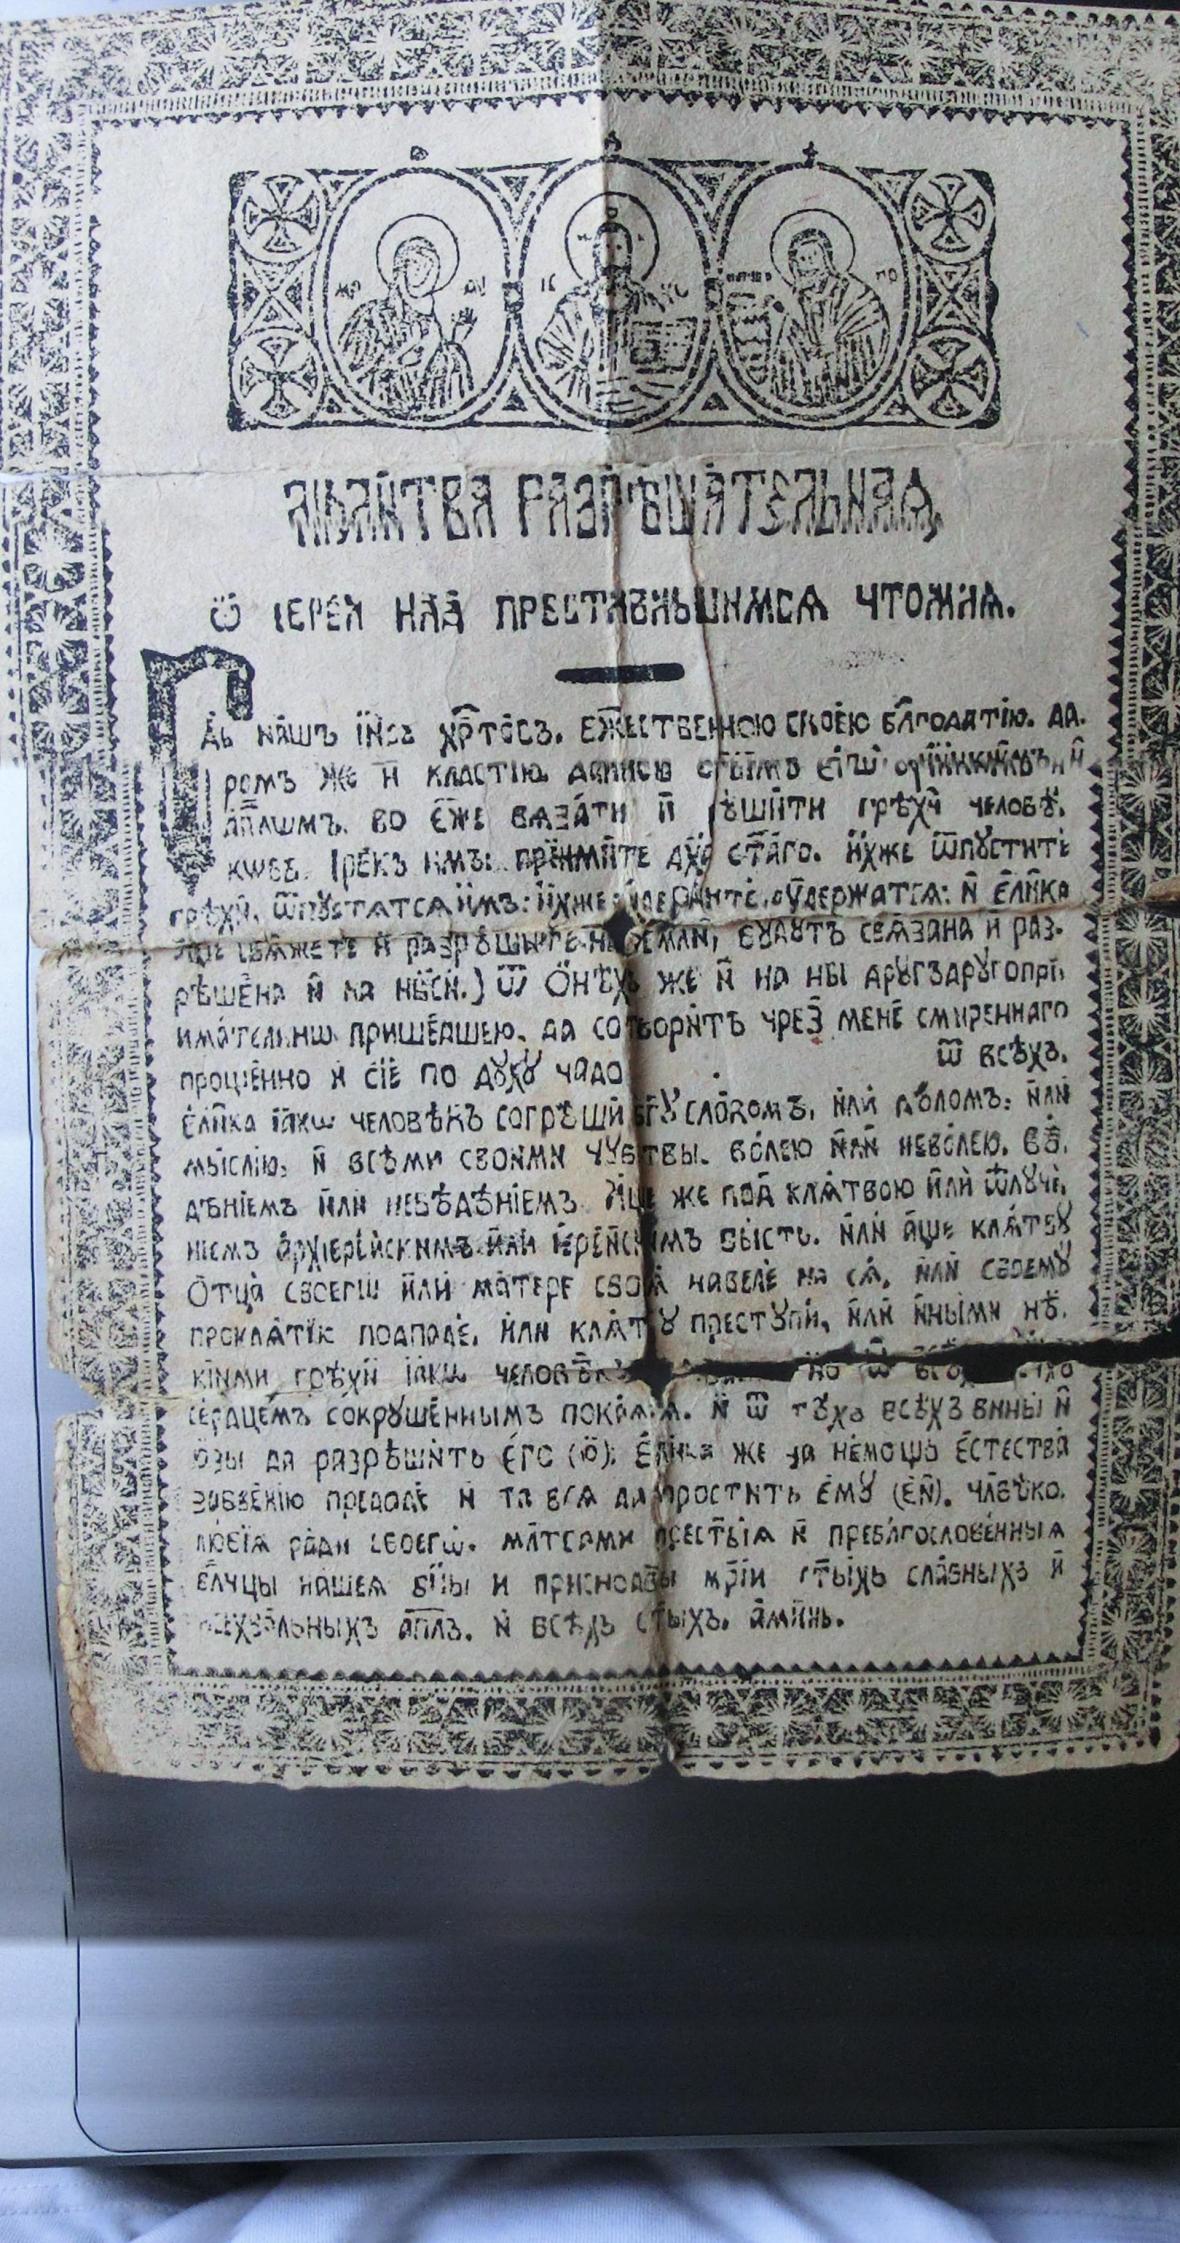 МР ΘΥ ІС ХС
МЛТВА РАЗРѢШАТЕЛЬНАѦ,
Ѿ ІЕРЕѦ НАД ПРЕСТАВЛЬШИМСѦ ЧТОМАѦ.
Гдь нашъ Іисъ Хртосъ. бжественною своею блгодатію. да-
ромъ же и властію данною стымъ его ученикѡмъ и
апⷭлѡмъ. во еже вѧзати и рѣшити грѣхи человѣ-
кѡвъ. рекъ имъ: приимите дха стаго. ихже ѿпустите
грѣхи, ѿпустѧтсѧ имъ: ихже удержите, удержатсѧ: и елика
аще свѧжете и разрѣшите на земли, будутъ свѧзана и раз-
рѣшена и на нбси.) Ѿ Онѣхъ же и на ны другъдругопрі-
имательнѡ пришедшею. да сотворитъ чрез мене смиреннаго
прощенно и сіе по духу чадо ѿ всѣхъ.
елика іакѡ человѣкъ согрѣши бгу словомъ, или дѣломъ: или
мыслію: и всѣми своими чувствы. волею или неволею. вѣ-
дѣніемъ или невѣдѣніемъ. Аще же под клѧтвою или ѿлуче-
ніемъ архіерейскимъ или іерейскимъ бысть. или аще клѧтву
Отца своегѡ или матере своеѧ наведе на сѧ, или своему
проклѧтію подпаде, или клѧтву преступи, или иными нѣ-
кіими грѣхи іакѡ человѣкъ но ѿ всѣхъ
сердцемъ сокрушеннымъ покаѧсѧ. и ѿ тѣхъ всѣхъ вины и
юзы да разрѣшитъ его (ю): Елика же за немощь естества
забвенію предаде и та всѧ да проститъ ему (ей). члвѣко-
любіѧ ради своегѡ. млтвами престыѧ и преблгословенныѧ
влчцы нашеѧ бцы и приснодвы мріи стыхъ славныхъ и
всехвальныхъ апⷭлъ. и всѣхъ стыхъ. аминь.